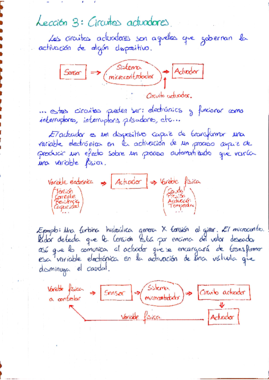 Lección 3: Circuitos actuadores.
Los circuitos actuadores son aquellos que gobiernan la
activación de algún dispositivo.
Sensor → Sistema microcontrolador → Actuador
Circuito actuador.
... estos circuitos pueden ser: electrónicos y funcionar como
interruptores, interruptores pulsadores, etc...
El actuador es un dispositivo capaz de transformar una
variable electrónica en la activación de un proceso capaz de
producir un efecto sobre un proceso automatizado que varía
una variable física.
Variable electrónica → Actuador → Variable física
Tensión
Corriente
Frecuencia
Capacidad
Caudal
Temperatura
Ejemplo: Una turbina hidráulica genera X tensión al girar. El microcontro-
lador detecta que la tensión está por encima del valor deseado
así que lo comunica al actuador que se encargará de transformar
esa variable electrónica en la activación de una válvula que
disminuya el caudal.
Variable física a controlar → Sensor → Sistema microcontrolador → Circuito actuador
Variable física ← Actuador